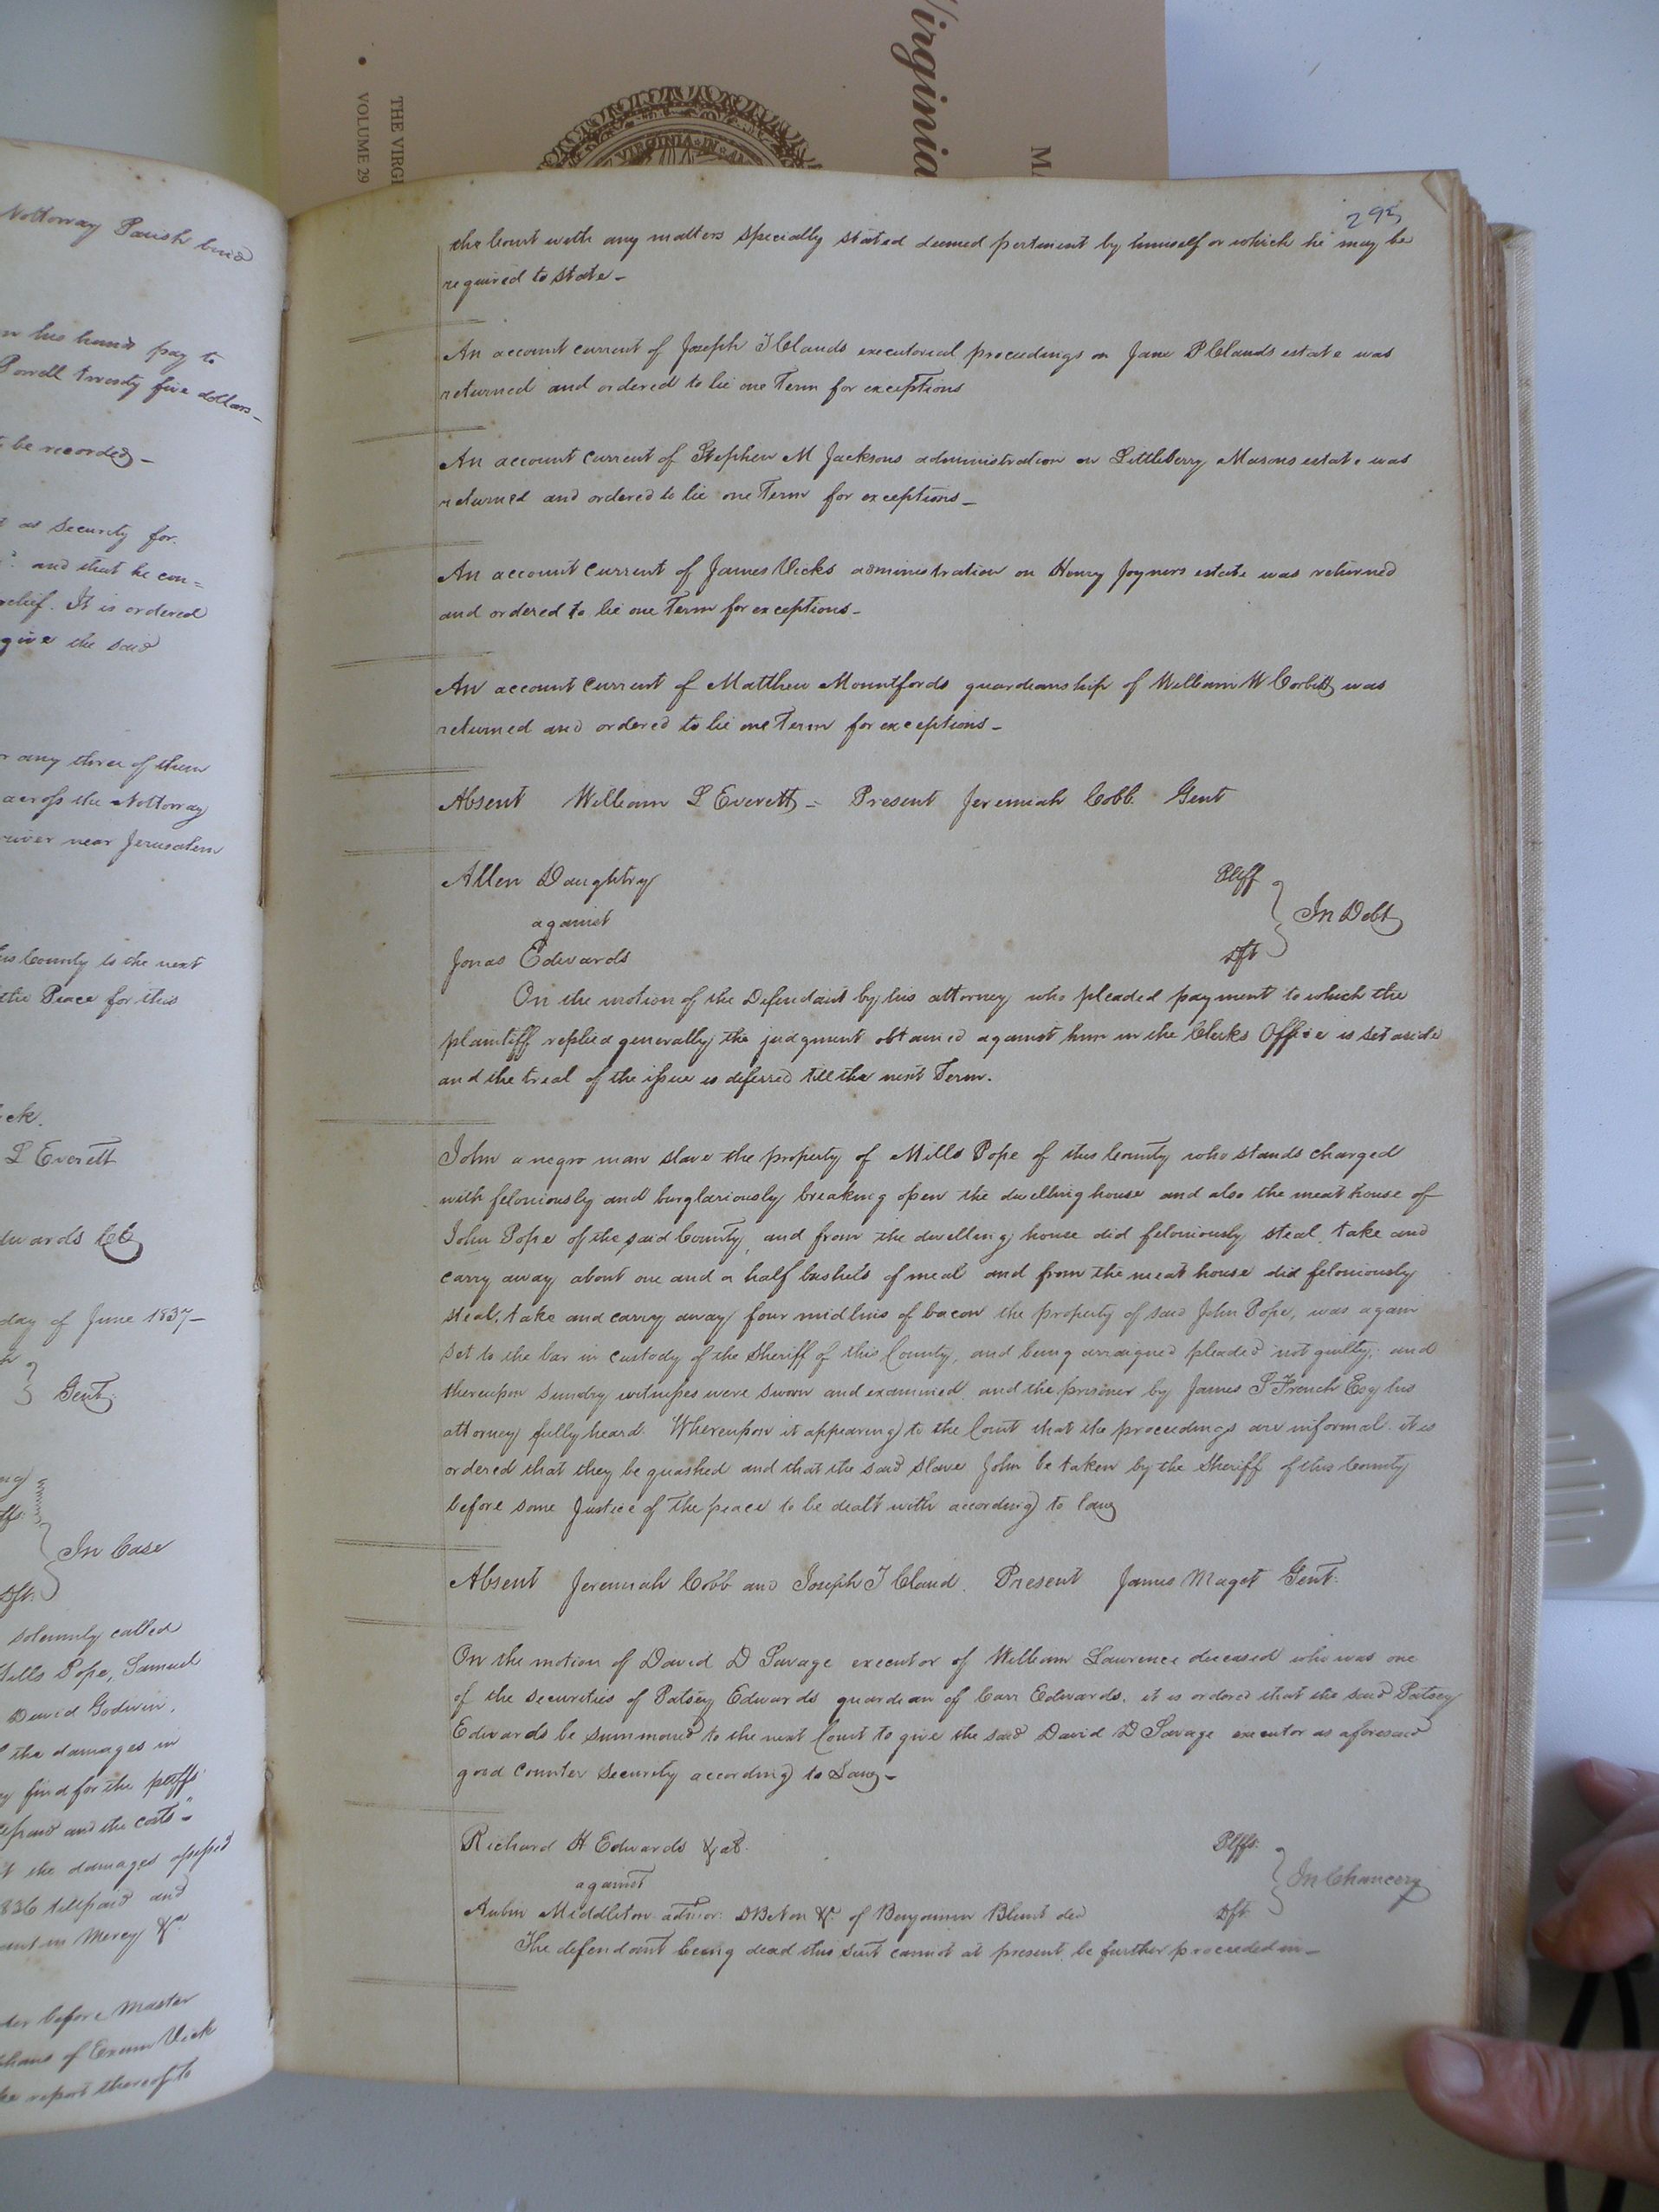 Virginia
THE VIRGI
VOLUME 29
VIRGINIA
Nottoway Parish
his hands pay to
Powell twenty five dollars_
be recorded_
as security for
and that he con=
relief. It is ordered
give the said
any three of them
across the Nottoway
river near Jerusalem
County to the next
the Peace for this
L Everett
day of June 1837_
Gent.
In Case
Dft.
solemnly called
Mills Pope, Samuel
David Godwin,
the damages in
find for the pltffs
and the costs
the damages assessed
till paid and
in Mercy &c.
before Master
of Exum Vick
report thereof to
295
the Court with any matters specially stated deemed pertinent by himself or which he may be
required to state_
An account current of Joseph T Clauds executorial proceedings on Jane P Clauds estate was
returned and ordered to lie one Term for exceptions
An account current of Stephen M Jacksons administration on Littleberry Masons estate was
returned and ordered to lie one Term for exceptions_
An account current of James Vicks administration on Henry Joyners estate was returned
and ordered to lie one Term for exceptions_
An account current of Matthew Mountfords guardianship of William W Corbitt was
returned and ordered to lie one Term for exceptions_
Absent William L Everett_ Present Jeremiah Cobb Gent
Allen Daughtry Pltff
against In Debt
Jonas Edwards Dft
On the motion of the Defendant by his attorney who pleaded payment to which the
plaintiff replied generally, the judgment obtained against him in the Clerks Office is set aside
and the trial of the issue is deferred till the next Term.
John a negro man slave the property of Mills Pope of this County who stands charged
with feloniously and burglariously breaking open the dwelling house and also the meat house of
John Pope of the said County, and from the dwelling house did feloniously steal, take and
carry away about one and a half bushels of meal and from the meat house did feloniously
steal, take and carry away four midlins of bacon the property of said John Pope, was again
set to the bar in custody of the Sheriff of this County, and being arraigned pleaded not guilty; and
thereupon sundry witnesses were sworn and examined and the prisoner by James S French Esq his
attorney fully heard. Whereupon it appearing to the Court that the proceedings are informal it is
ordered that they be quashed and that the said slave John be taken by the Sheriff of this County
before some Justice of the peace to be dealt with according to law
Absent Jeremiah Cobb and Joseph T Claud. Present James Maget Gent.
On the motion of David D Savage executor of William Lawrence deceased who was one
of the securities of Patsey Edwards guardian of Carr Edwards, it is ordered that the said Patsey
Edwards be summoned to the next Court to give the said David D Savage executor as aforesaid
good counter security according to Law_
Richard H Edwards & al. Pltffs.
against In Chancery
Aubin Middleton admor. DBNon &c. of Benjamin Blunt decd Dft.
The defendant being dead this suit cannot at present be further proceeded in_